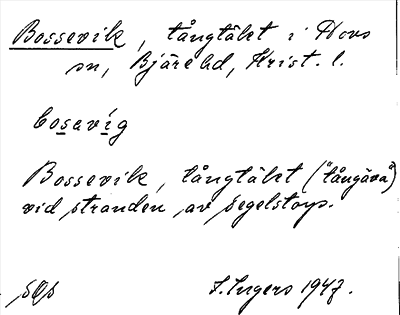 Bossevik, tångtäkt i Hovs
sn, Bjäre hd, Krist. l.
bosavíg
Bossevik, tångtäkt ("tångäva")
vid stranden av Segelstorp.
I. Ingers 1947.